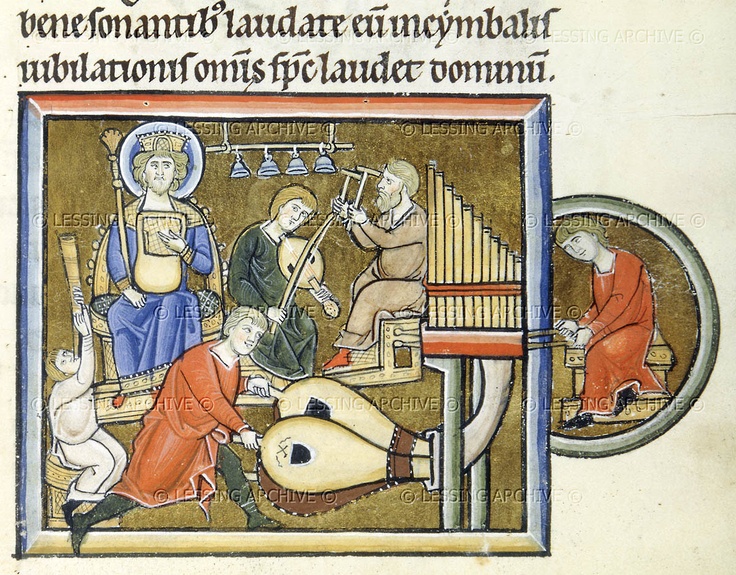 bene sonantib' laudate eū in cymbalis
iubilationis om̄s sp̄c laudet dominū.
© LESSING ARCHIVE ©